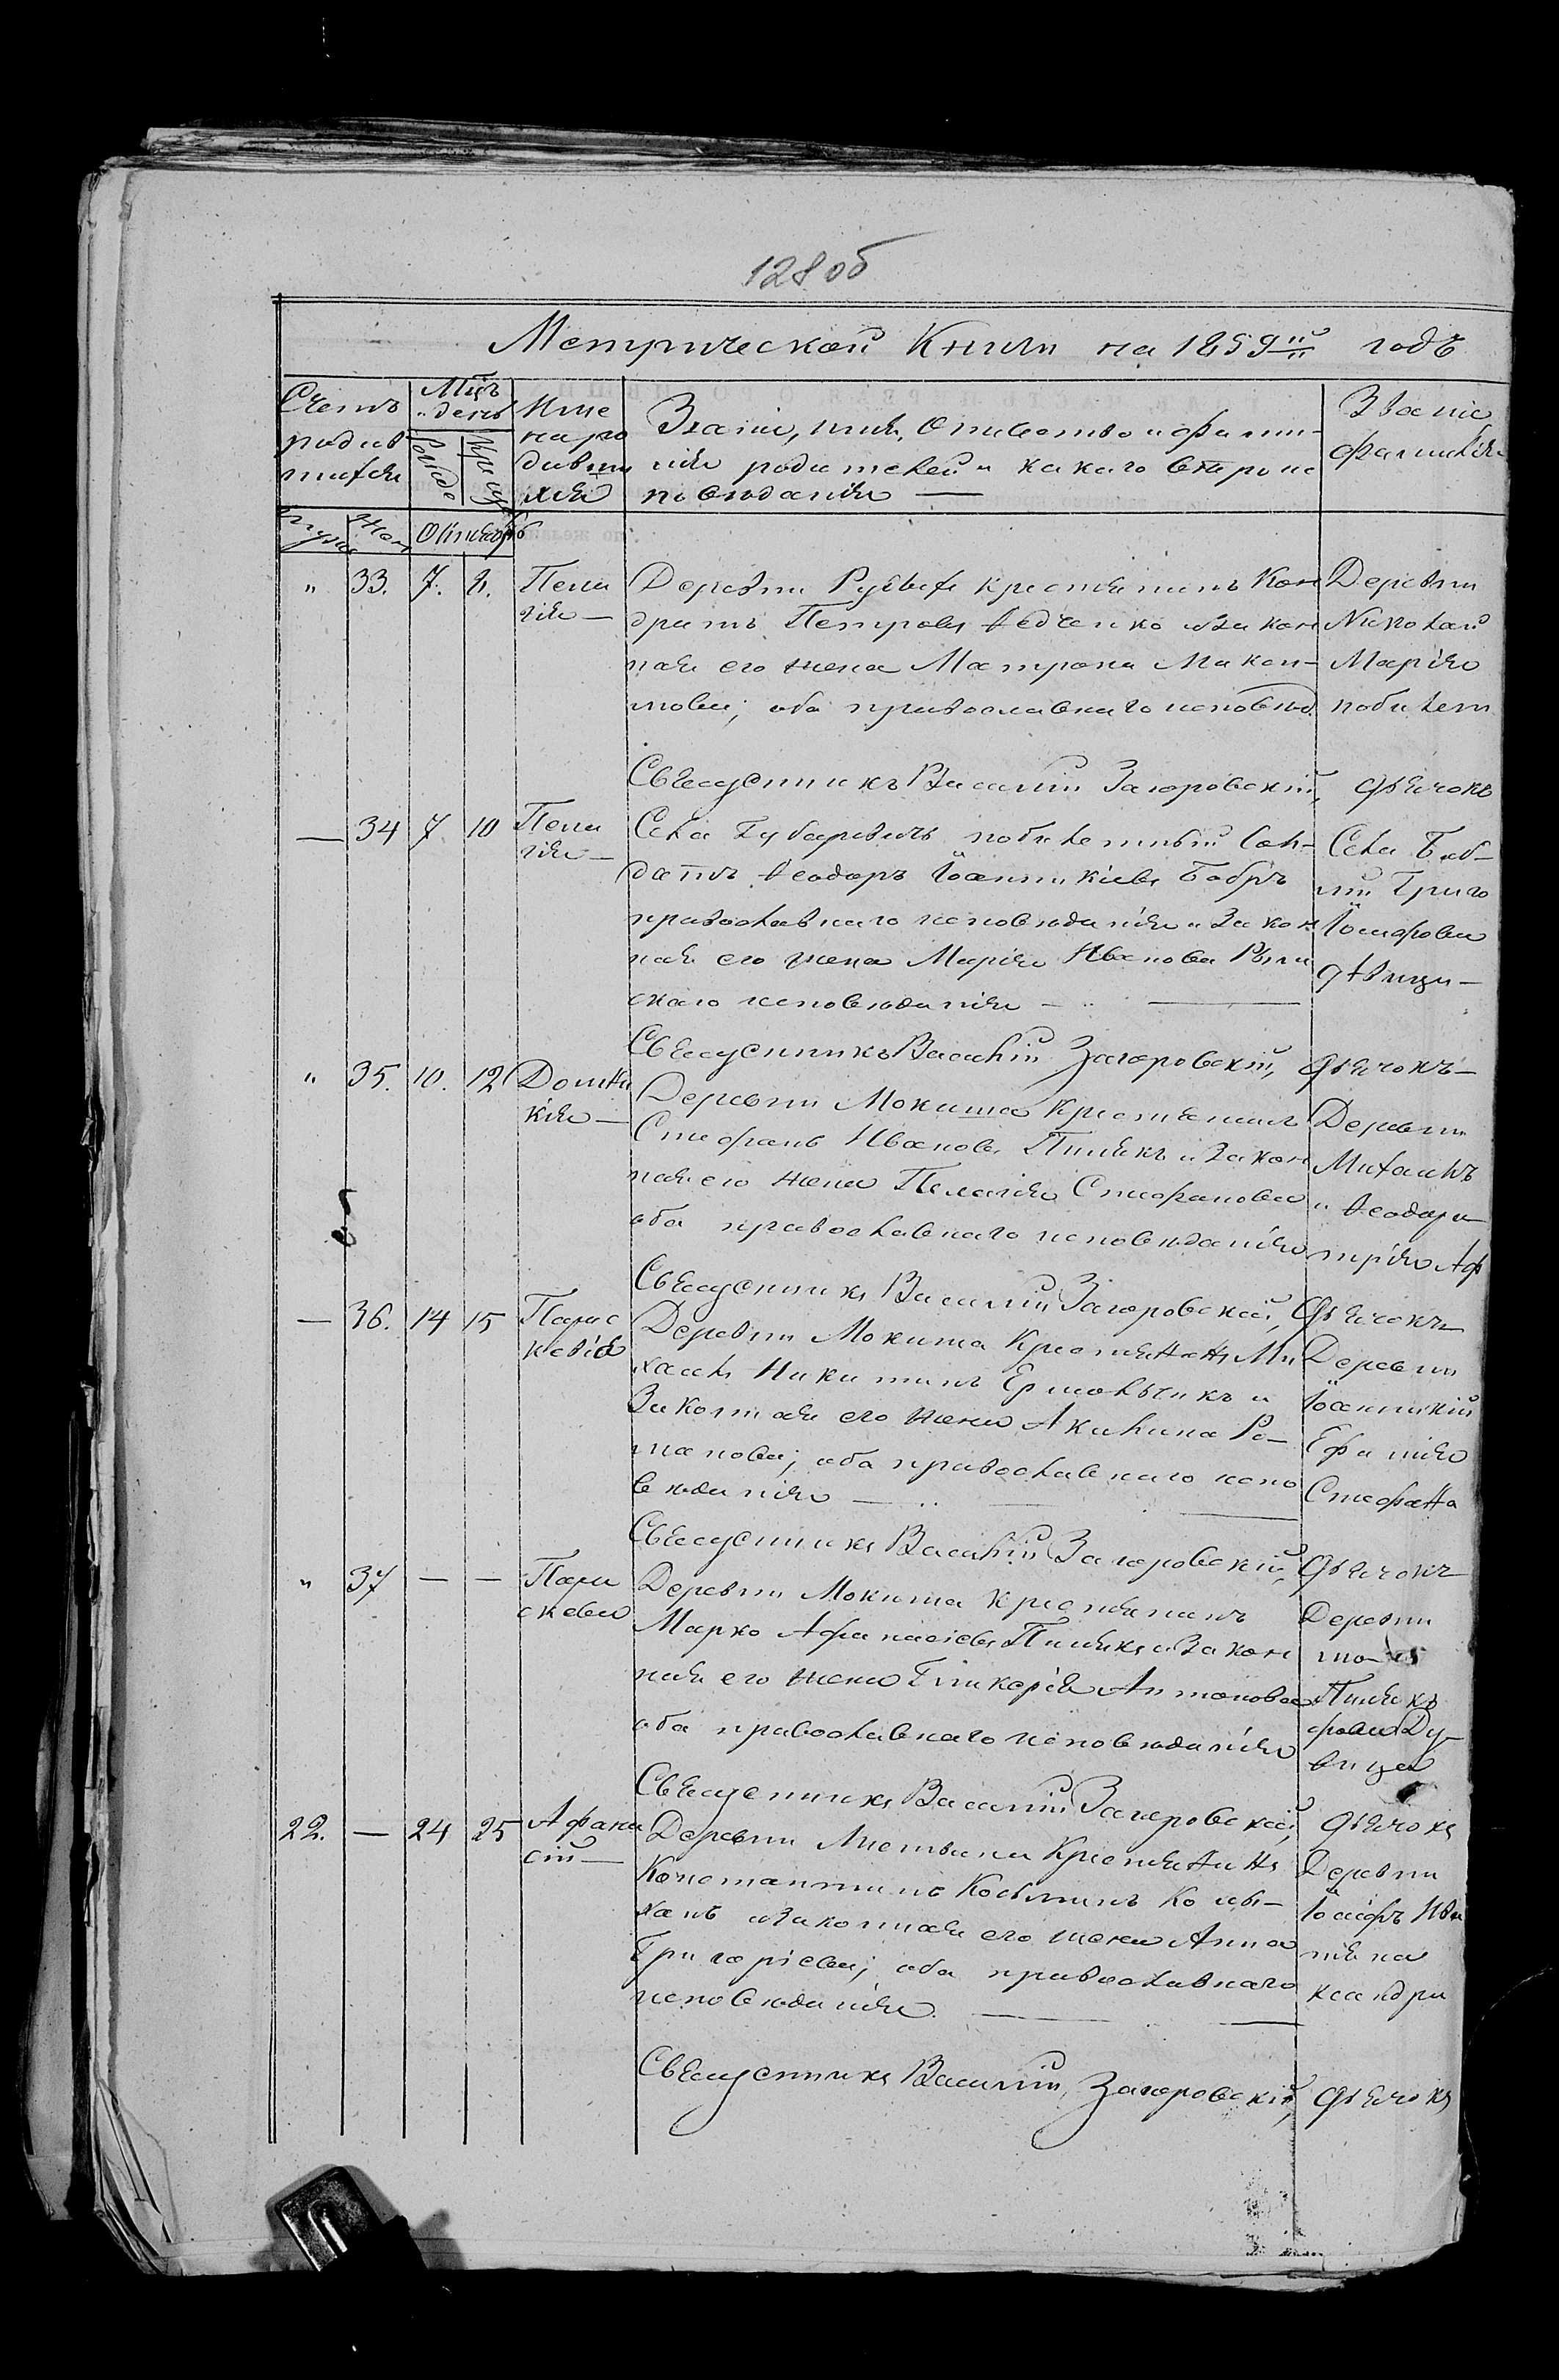 128 об
Метрической Книги на 1859й годъ
Счетъ родив шихся
Мцъ и день
Рожде
Крещ
Имена ро дивши хся
Званіе, имя, Отчество и фами-
лія родителей и какого Вѣроис
повѣданія —
Званіе
фамилія
Муж
Жен
Октябрь
" 33. 7. 8. Пела гія —
Деревни крестьянинъ Кон
дратъ Петровъ Ѳедченко и Закон
ная его жена Матрона
оба православнаго исповѣд.
Деревни
Николай
Марія
побилетн
Священникъ Василій Загоровскій, Дьячокъ
— 34 7 10 Пела гія —
Села Губаревичъ побилетный Сол-
датъ Ѳеодоръ Іоанникіевъ Бобръ
православнаго исповѣданія и Закон
ная его жена Марія Иванова Рим
скаго исповѣданія —
Села Баб-
Григо
Іосифова
дѣвица —
Священникъ Василій Загоровскій, Дьячокъ —
" 35. 10. 12 Домни кія —
Деревни Мокиша Крестьянинъ
Стефанъ Ивановъ Пинякъ и Закон
ная его жена Пелагія Стефанова
оба православнаго исповѣданія
Деревни
Михаилъ
и Ѳеодора
трія Аф
Священникъ Василій Загоровскій, Дьячокъ
— 36. 14 15 Парас кевія
Деревни Мокиша Крестьянинъ Ми
хаилъ Никитинъ Ермольчикъ и
Законная его жена Акилина Ро-
манова; оба православнаго испо
вѣданія —
Деревни
Іоанникій
Ефимія
Стефана
Священникъ Василій Загоровскій, Дьячокъ
" 37 — — Пара скева
Деревни Мокиша крестьянинъ
Марко Афанасіевъ Пинякъ и Закон
ная его жена Гликерія Антонова
оба православнаго исповѣданія
Деревни
Пинякъ
фова Ду-
вица
Священникъ Василій Загоровскій, Дьячокъ
22. — 24 25 Афана сій —
Деревни Крестьянинъ
Константинъ Косминъ
и Законная его жена Анна
Григоріева; оба православнаго
исповѣданія. —
Деревни
Іосифъ Ива
ксандра
Священникъ Василій Загоровскій, Дьячокъ